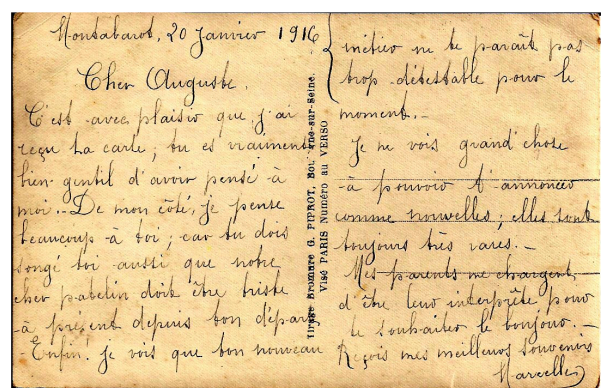 Montabarot, 20 Janvier 1916
Cher Auguste.
C'est avec plaisir que j'ai
reçu ta carte; tu es vraiment
bien gentil d'avoir pensé à
moi.. De mon côté, je pense
beaucoup à toi; car tu dois
songé toi aussi que notre
cher patelin doit être triste
à présent depuis ton départ
Enfin. je vois que ton nouveau
Tirage Bromure G. PIPROT, Bou. gne-sur-Seine.
Visé PARIS Numéro au VERSO
métier ne te paraît pas
trop détestable pour le
moment. -
Je ne vois grand'chose
à pouvoir t'annoncer
comme nouvelles; elles sont
toujours très rares. -
Mes parents me chargent
d'être leur interprète pour
te souhaiter le bonjour. -
Reçois mes meilleurs souvenirs
Marcelle